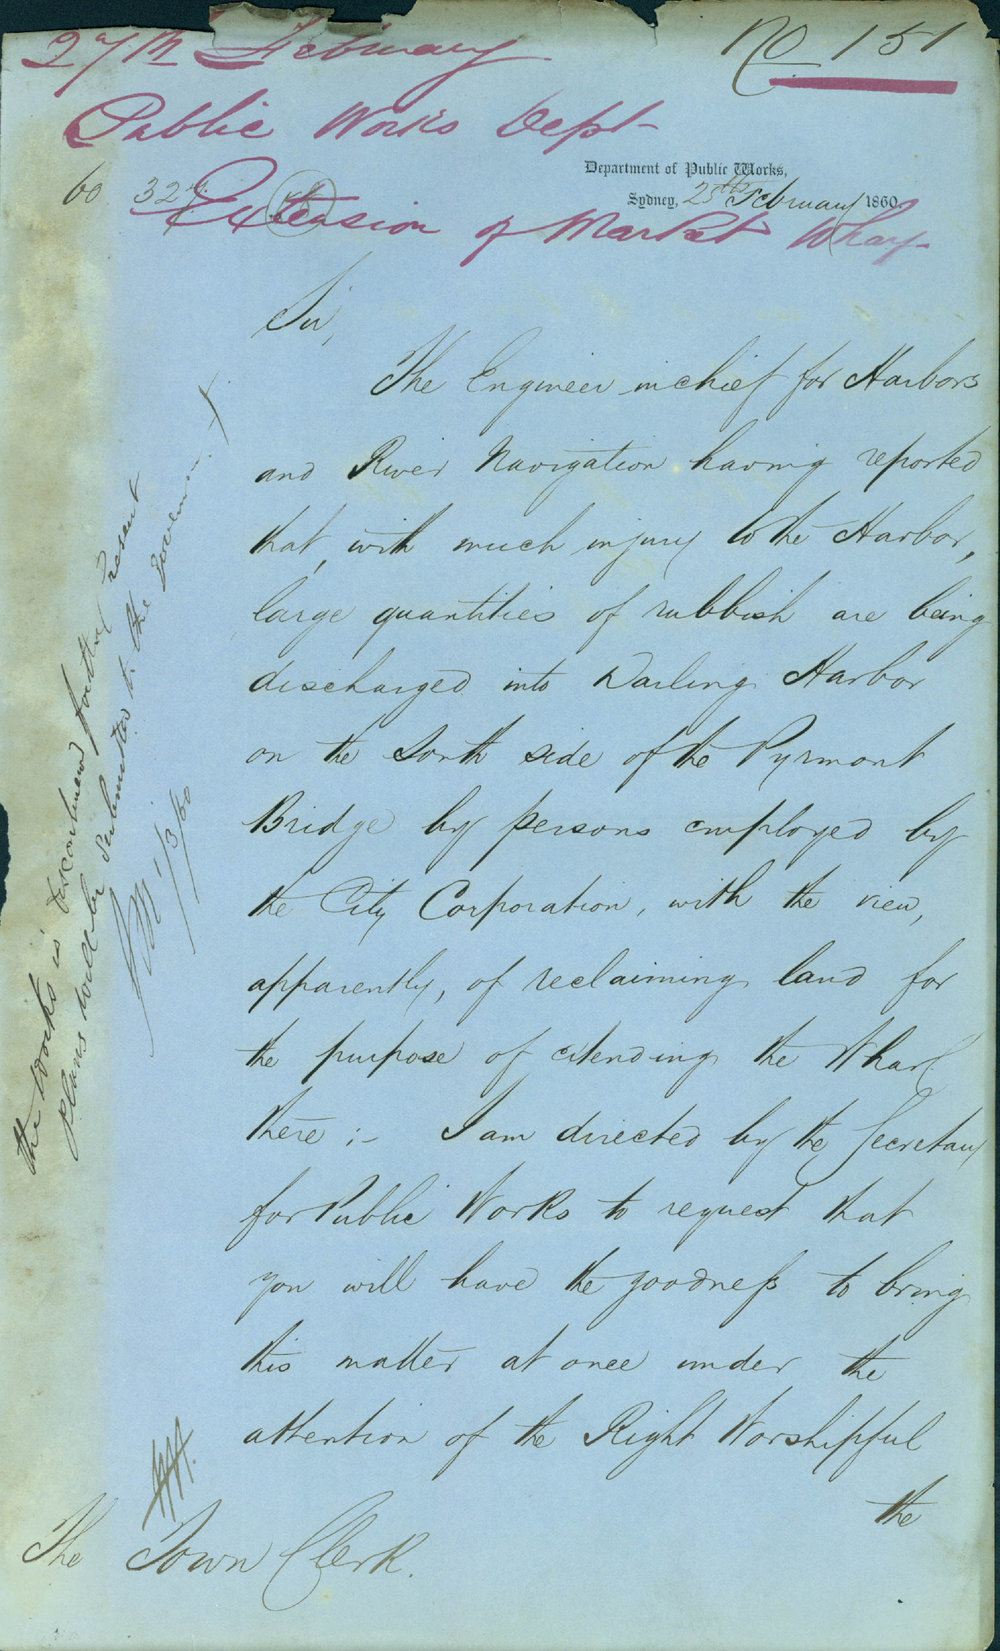 27th February
No 151
Public Works Dept
Department of Public Works,
60 327
Sydney, 25th February 1860.
Extension of Market Wharf
Sir,
The Engineer in chief for Harbors
and River Navigation having reported
that, with much injury to the Harbor,
large quantities of rubbish are being
discharged into Darling Harbor
on the South side of the Pyrmont
Bridge by persons employed by
the City Corporation, with the view,
apparently, of reclaiming land for
the purpose of extending the Wharf
there :- I am directed by the Secretary
for Public Works to request that
you will have the goodness to bring
this matter at once under the
attention of the Right Worshipful
the
The Town Clerk.
the works is discontinued for the present
plans will be submitted to the Government
1/3/60